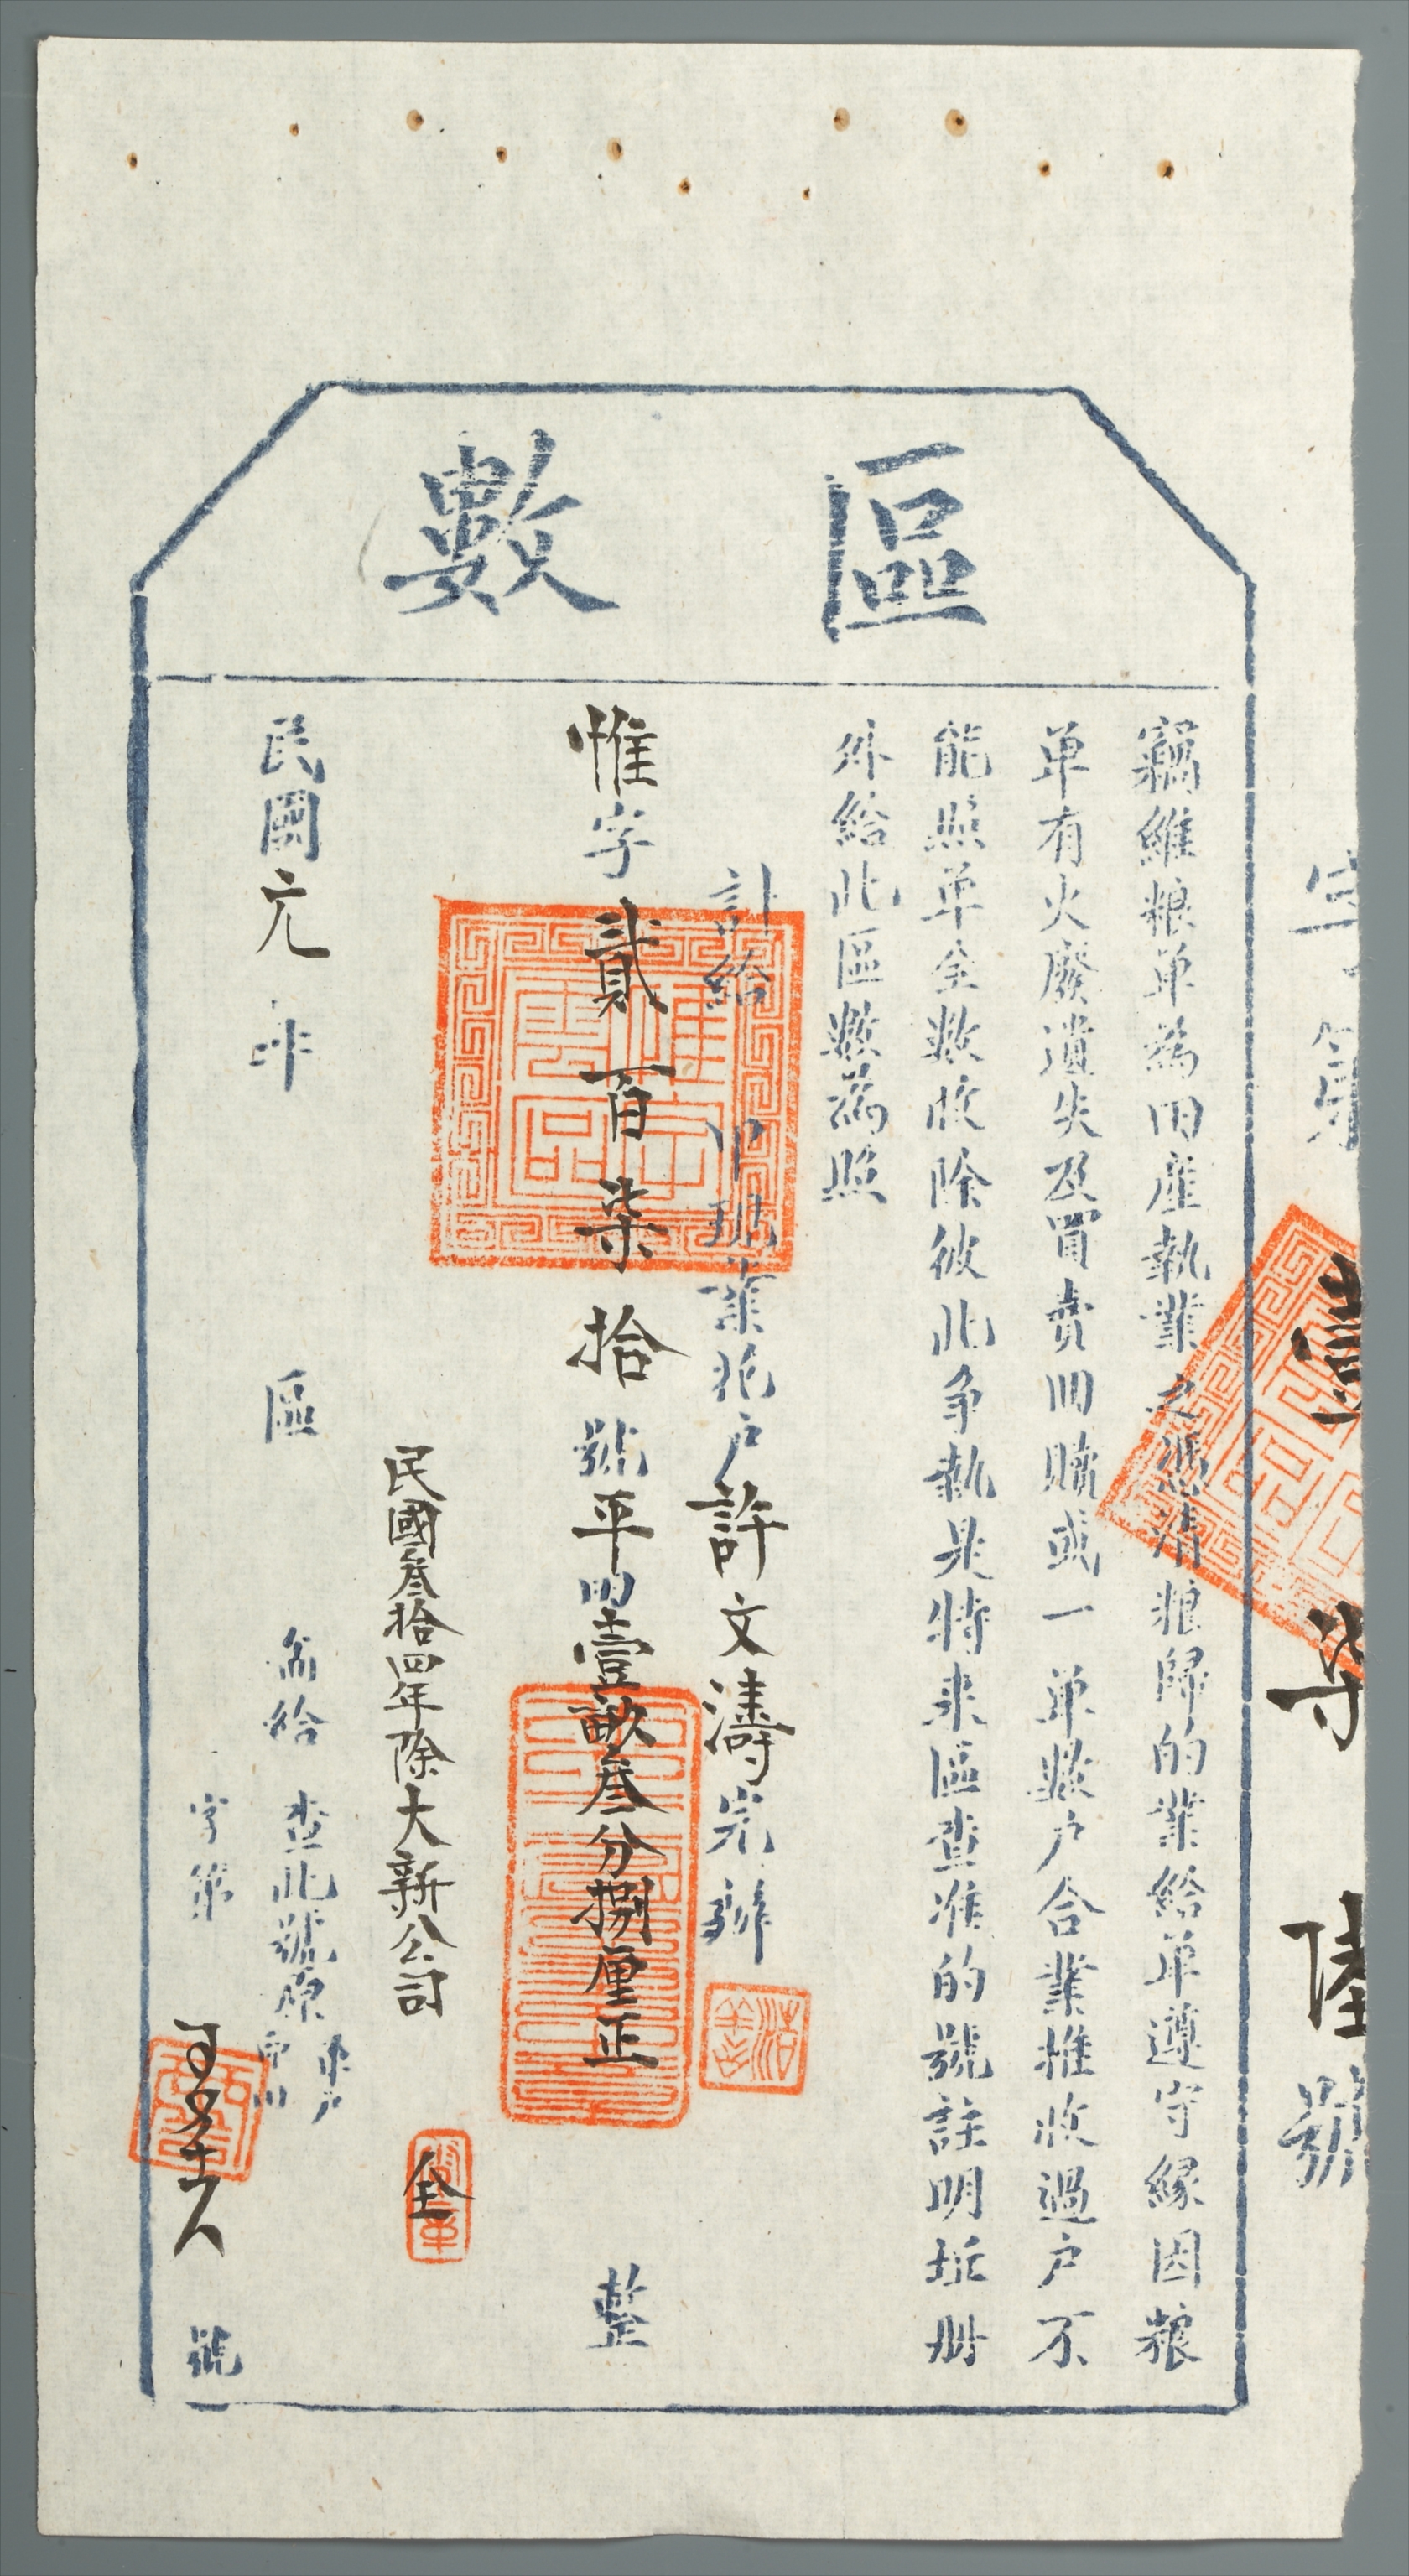 區數
竊維粮单為田產執業之憑清粮歸的業給单遵守緣因粮
单有火廢遺失及買賣回贖或一单數户合業推收過户不
能照单全數收除彼此爭執是特來區查准的號註明坵冊
外給此區數為照
計給 坵業花户許文濤完辦
惟字貳百柒拾號平田壹畝叁分捌厘正整
民國叁拾四年除大新公司
全
民國元年 區 給 查此號原
字第 號
字第 柒 陸 號